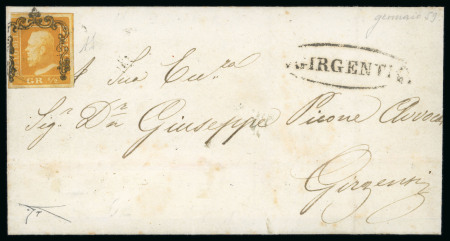 gennaio 59
GIRGENTI
GR. ½
A Sua Ecc.za
Sig.r D.n Giuseppe Picone Avvoca
Girgenti